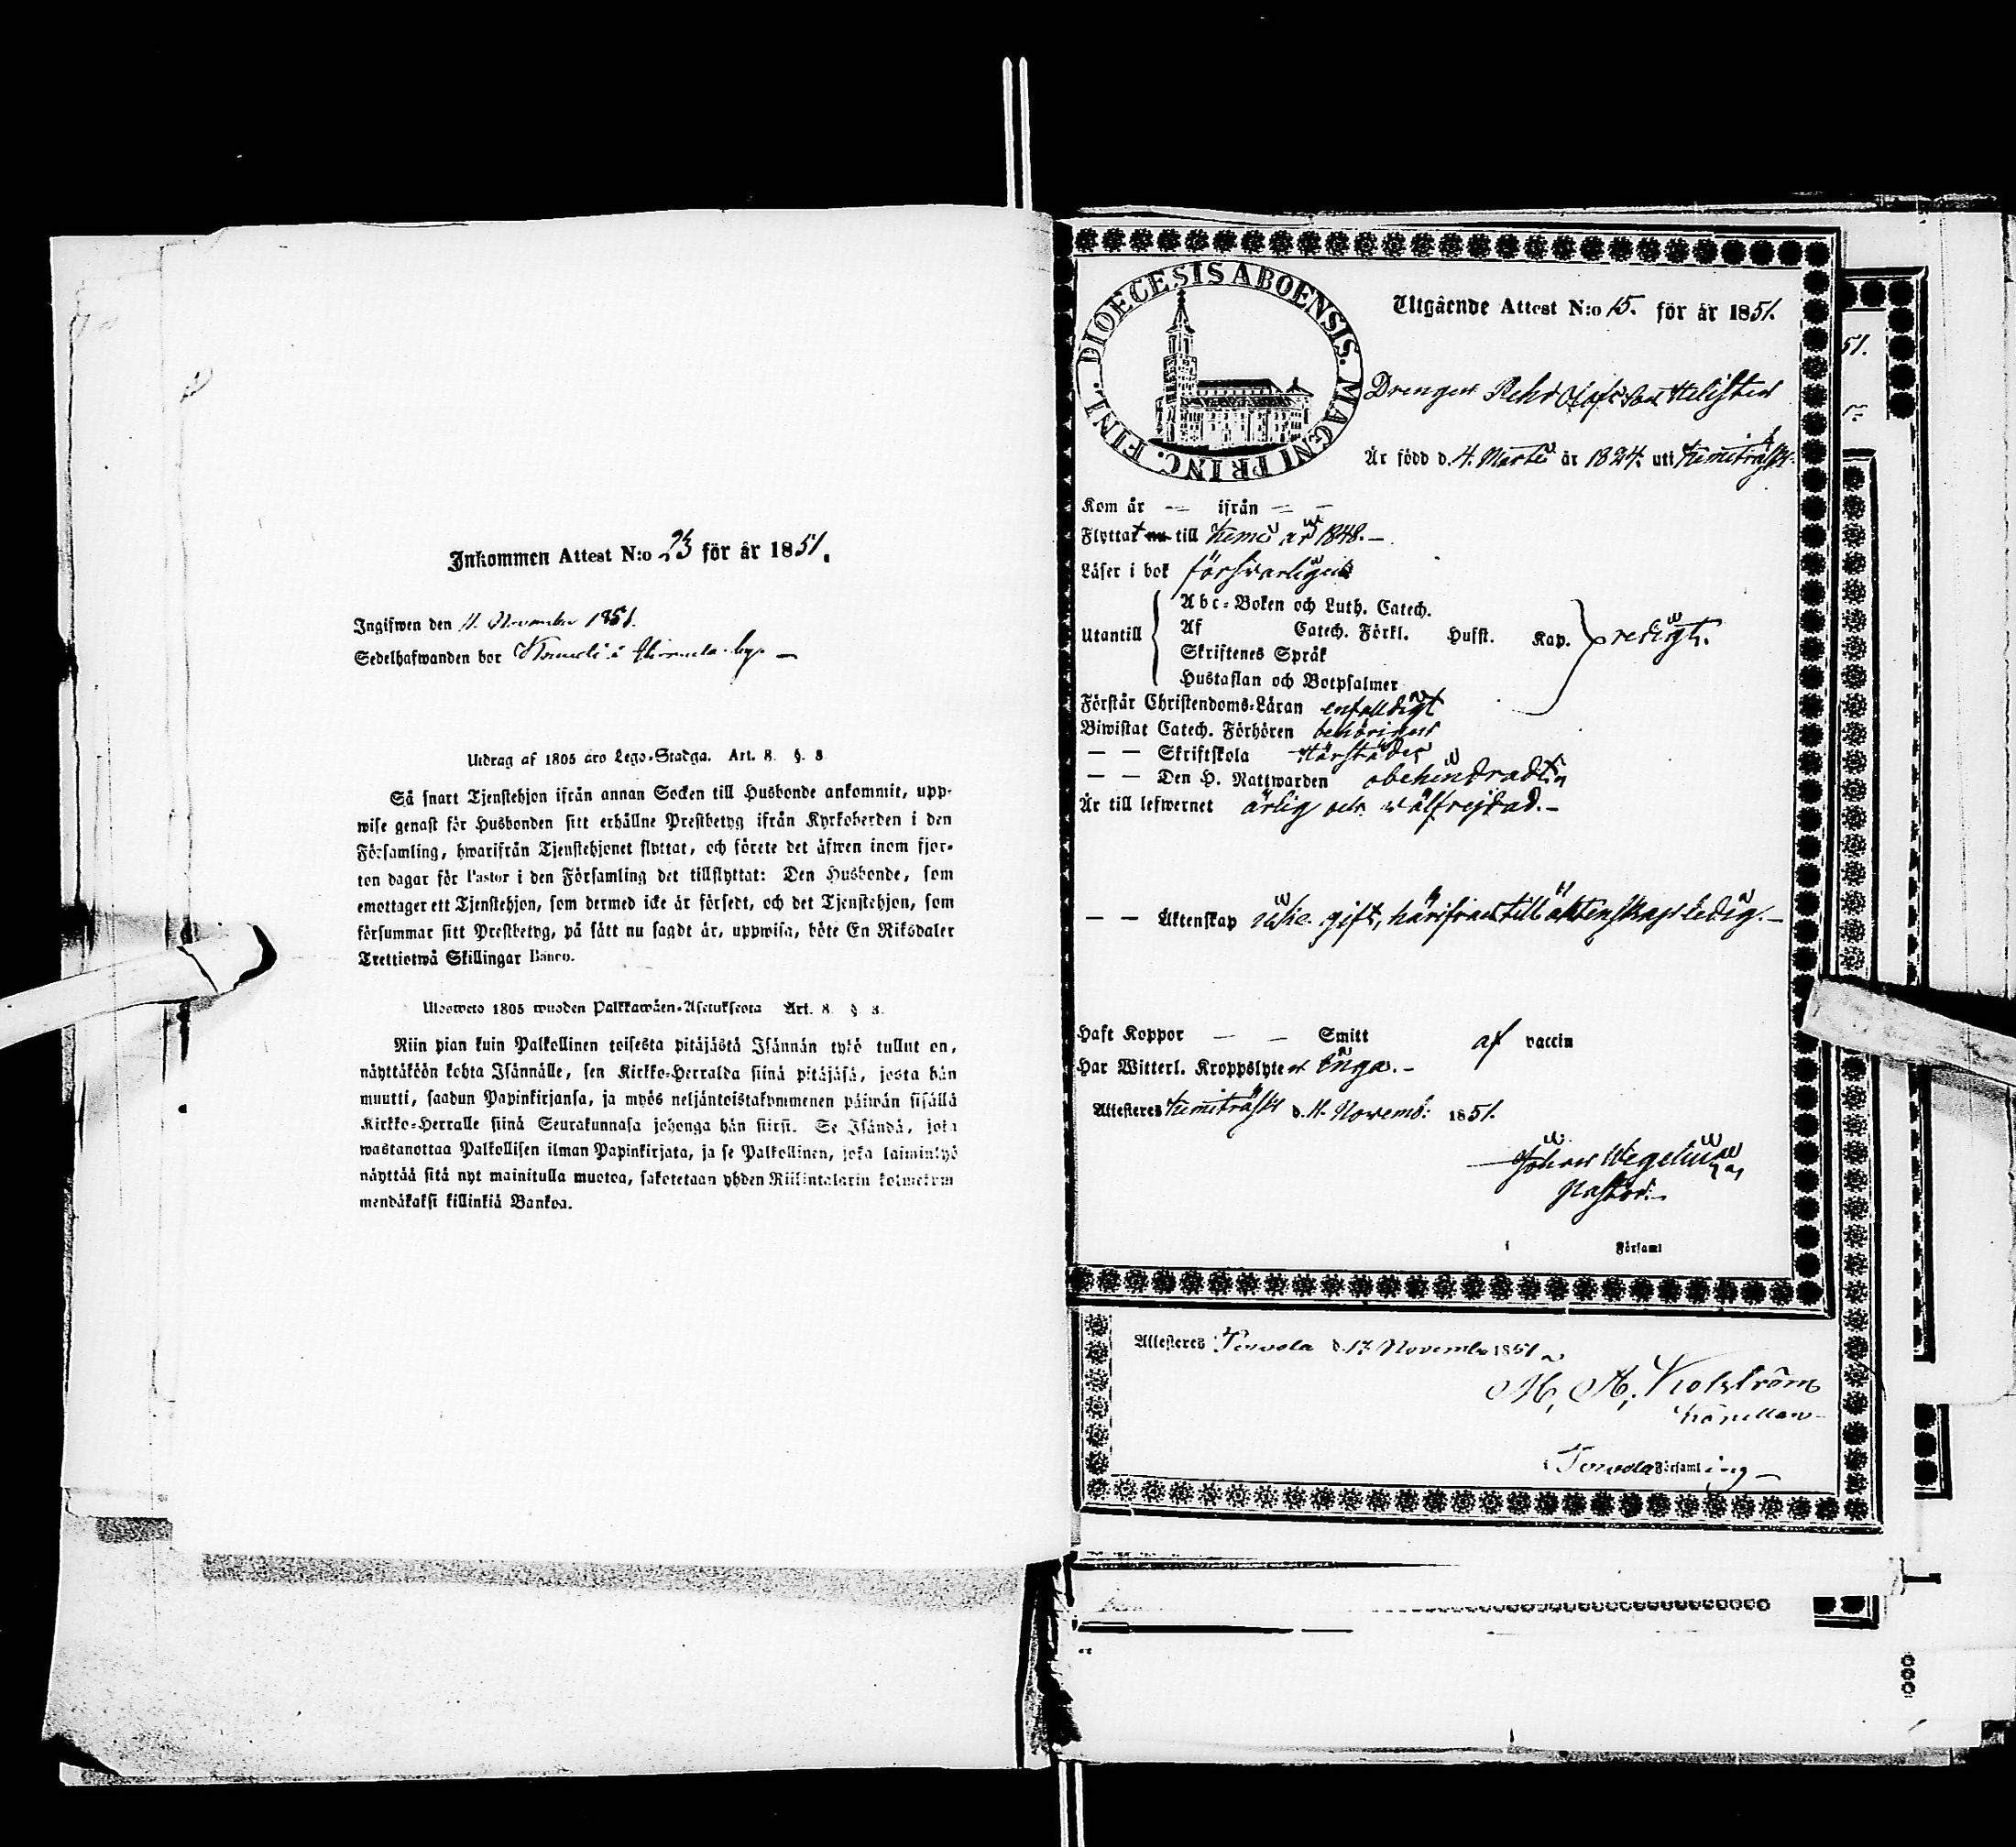 Inkommen Attest N:o 23 för år 1851.
Ingifwen den 11. November 1851.
Sedelhafwanden bor i by. —
Utdrag af 1805 års Lego-Stadga. Art. 8. §. 8.
Så snart Tjenstehjon ifrån annan Socken till Husbonde ankommit, upp-
wise genast för Husbonden sitt erhållne Prestbetyg ifrån Kyrkoherden i den
Församling, hwarifrån Tjenstehjonet flyttat, och förete det äfwen inom fjor-
ton dagar för Pastor i den Församling det tillflyttat: Den Husbonde, som
emottager ett Tjenstehjon, som dermed icke är försedt, och det Tjenstehjon, som
försummar sitt Prestbetyg, på sätt nu sagdt är, uppwisa, böte En Riksdaler
Trettiotwå Skillingar Banco.
Ulosweto 1805 wuoden Palkkawäen-Asetuksesta Art. 8. § 8.
Niin pian kuin Palkollinen toisesta pitäjästä Isännän tykö tullut on,
näyttäköön kohta Isännälle, sen Kirkko-Herralda siinä pitäjäsä, josta hän
muutti, saadun Papinkirjansa, ja myös neljäntoistakymmenen päiwän sisällä
Kirkko-Herralle siinä Seurakunnasa johonga hän siirsi. Se Isändä, joka
wastanottaa Palkollisen ilman Papinkirjata, ja se Palkollinen, joka laiminlyö
näyttää sitä nyt mainitulla muotoa, sakotetaan yhden Riikintalarin kolmekym
mendäkaksi killinkiä Bankoa.
DIOECESIS ABOENSIS. MAGNI PRINC. FINL.
Utgående Attest N:o 15. för år 1851.
Drengen Pehr Olofsson Helisten
Är född d. 4. Martii år 1824. uti Kemiträsk.
Kom år — ifrån — —
Flyttat nu till Kemi år 1848. —
Läser i bok försvarligen
Abc-Boken och Luth. Catech.
Utantill Af Catech. Förkl. Husst. Kap. redigt.
Skriftenes Språk
Hustaflan och Botpsalmer
Förstår Christendoms-Läran enfaldigt
Biwistat Catech. Förhören behörigen
— — Skriftskola härstädes
— — Den H. Nattwarden obehindrad
Är till lefwernet ärlig och wälfrejdad. —
— — Äktenskap icke gift, härifrån till äktenskap ledig. —
Haft Koppor — — Smitt af vaccin
Har Witterl. Kroppslyten inga. —
Attesteres Kemiträsk d. 11. Novemb: 1851.
Johan Wegelius
Pastor. —
i Församl
Attesteres Terwola d. 17 November 1851
Kapellan
i Terwola Församling —
51.